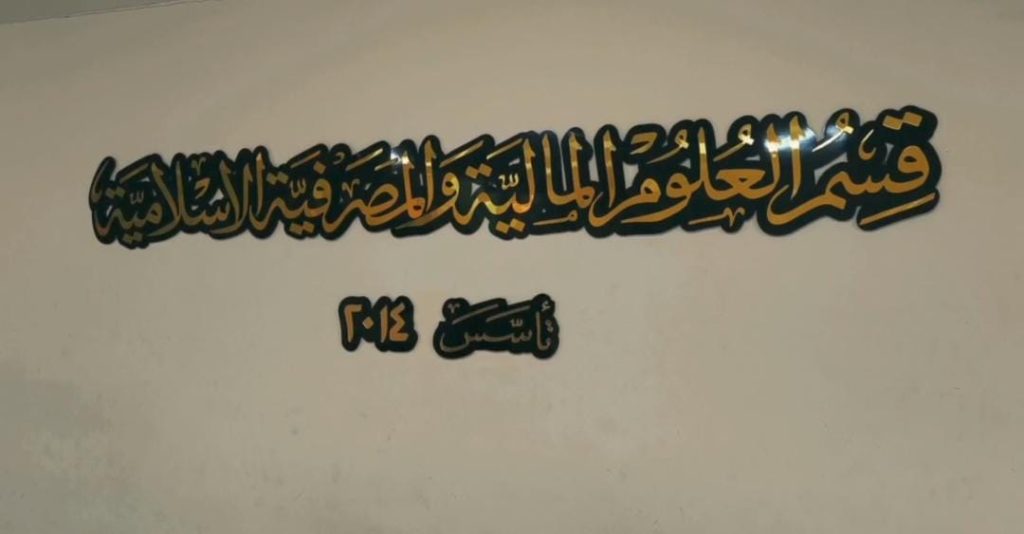 قسم العلوم المالية والمصرفية الاسلامية
تأسس ٢٠١٤